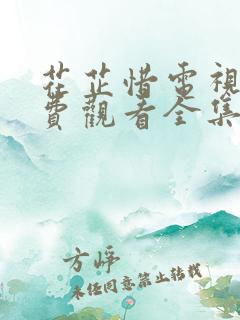 茌芷惜電視
費觀看全集
方崢
未经同意禁止转载